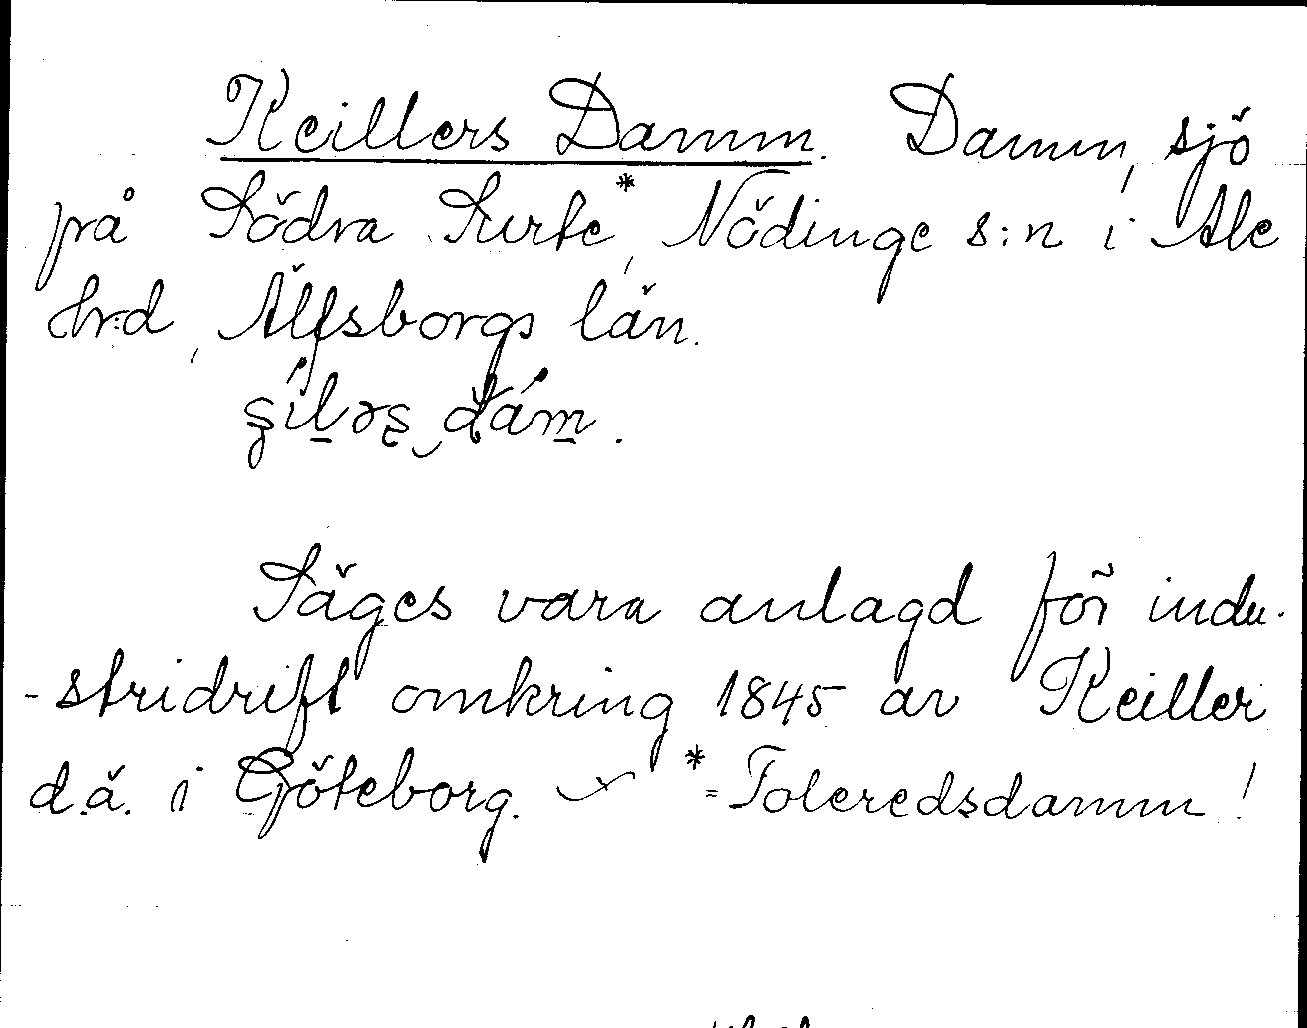 Keillers Damm. Damm, sjö
på Södra Surte*, Nödinge s:n i Ale
hrd, Älfsborgs län.
Säges vara anlagd för indu-
-stridrift omkring 1845 av Keiller
d.ä. i Göteborg. * = Toleredsdamm!